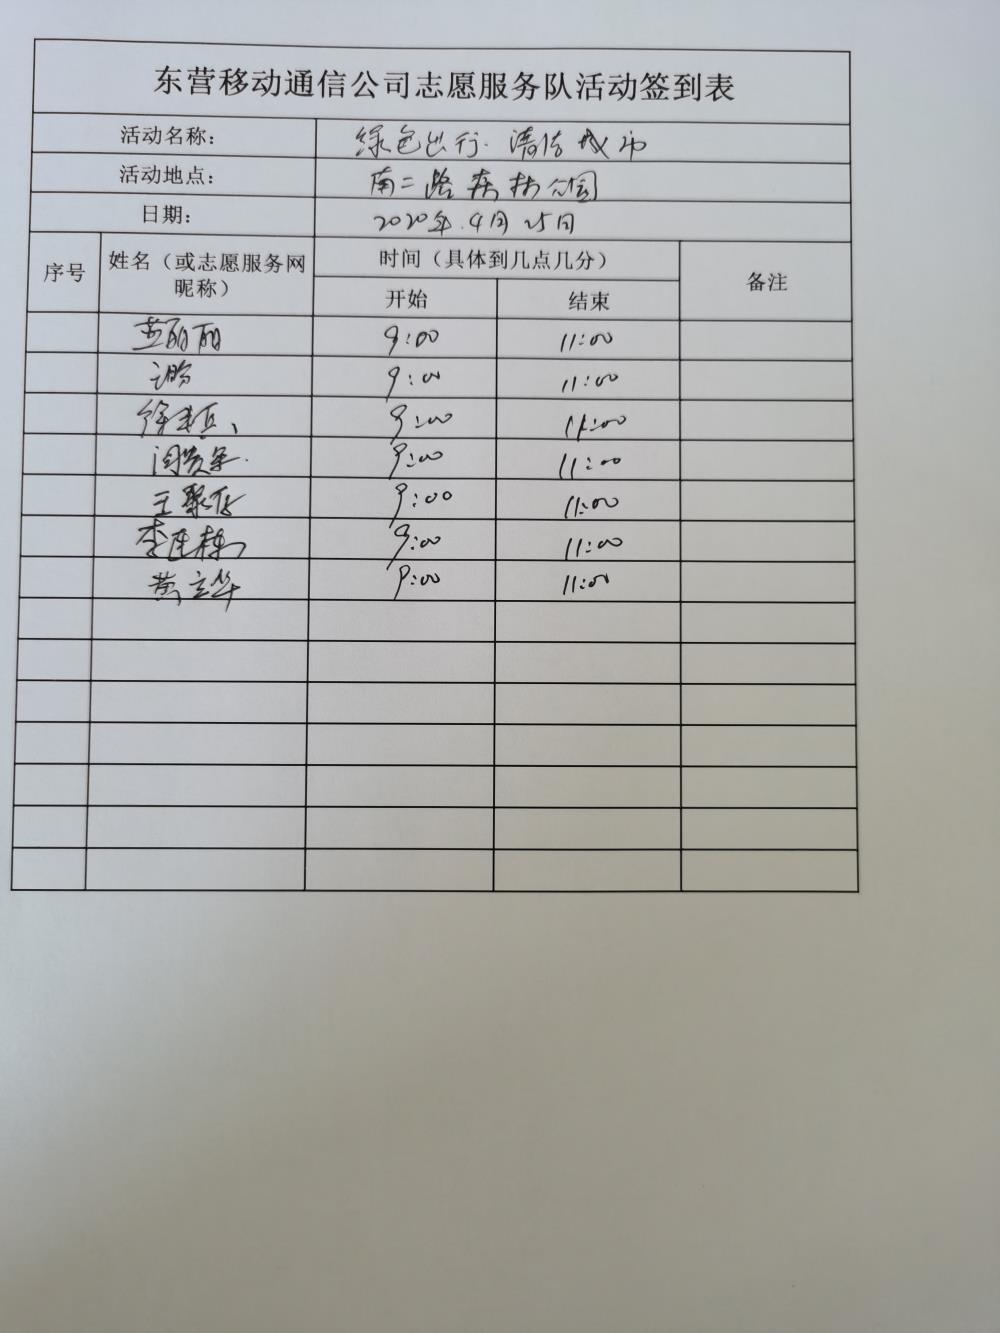 东营移动通信公司志愿服务队活动签到表
活动名称： 绿色出行.清洁城市
活动地点： 南二路森林公园
日期： 2020年.4月25日
序号 姓名（或志愿服务网昵称） 时间（具体到几点几分） 备注
开始 结束
丽丽 9:00 11:00
9:00 11:00
徐 9:00 11:00
9:00 11:00
王聚存 9:00 11:00
李连栋 9:00 11:00
黄立华 9:00 11:00